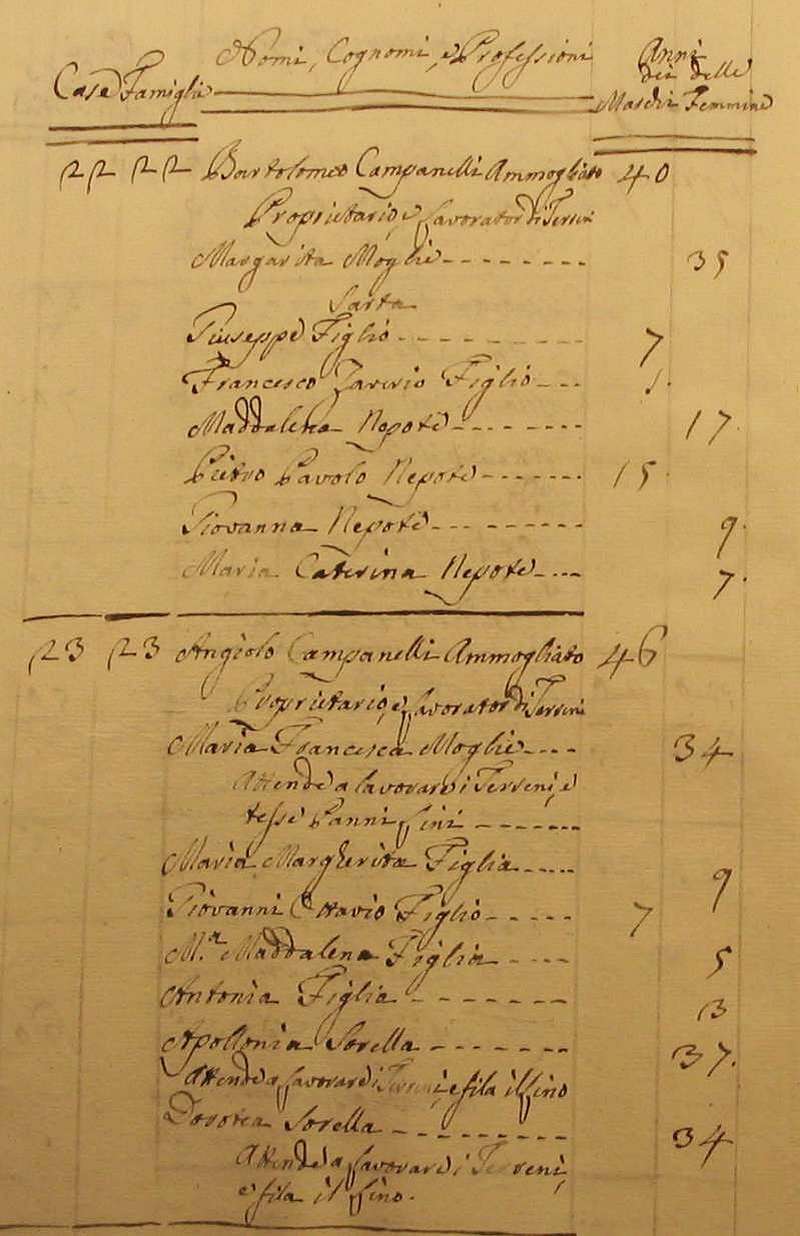 Case Famiglie Nomi, Cognomi, e Professioni Anni
dei delle
Maschi Femmine
22 22 Bartolomeo Campanelli Ammogliato 40
Proprietario, e lavorator di Terreni
Margarita Moglie 35
Sarta
Giuseppe Figlio 7
Francesco Zaverio Figlio 1.
Maddalena Nepote 17.
Pietro Pavolo Nepote 15.
Giovanna Nepote 9.
Maria Caterina Nepote 7.
23 23 Angiolo Campanelli Ammogliato 46
Proprietario, e lavorator di Terreni
Maria Francesca Moglie 34
Attende a lavorare i Terreni, e
tesse Panni Lini
Maria Margherita Figlia 9
Giovanni Ottavio Figlio 7
M.a Maddalena Figlia 5
Antonia Figlia 3
Apollonia Sorella 37.
Attende a lavorare i Terreni, e fila il lino
Dorotea Sorella 34
Attende a lavorare i Terreni,
e fila il lino.